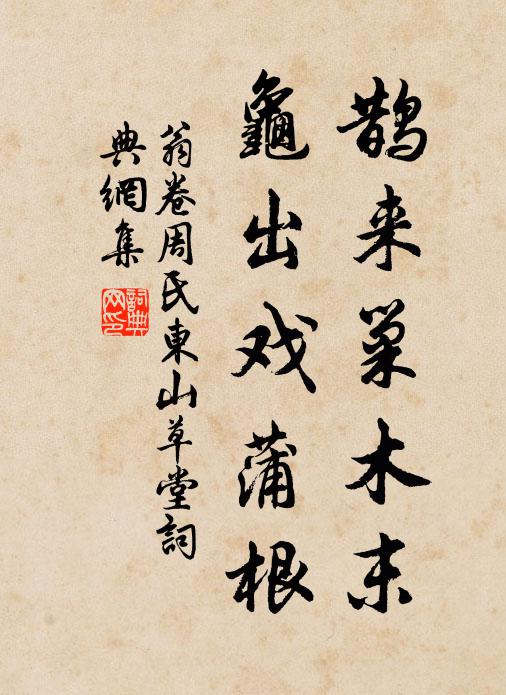 鹊来巢木末
龜出戏蒲根
翁卷周氏東山草堂詞
典網集
詞典
网印